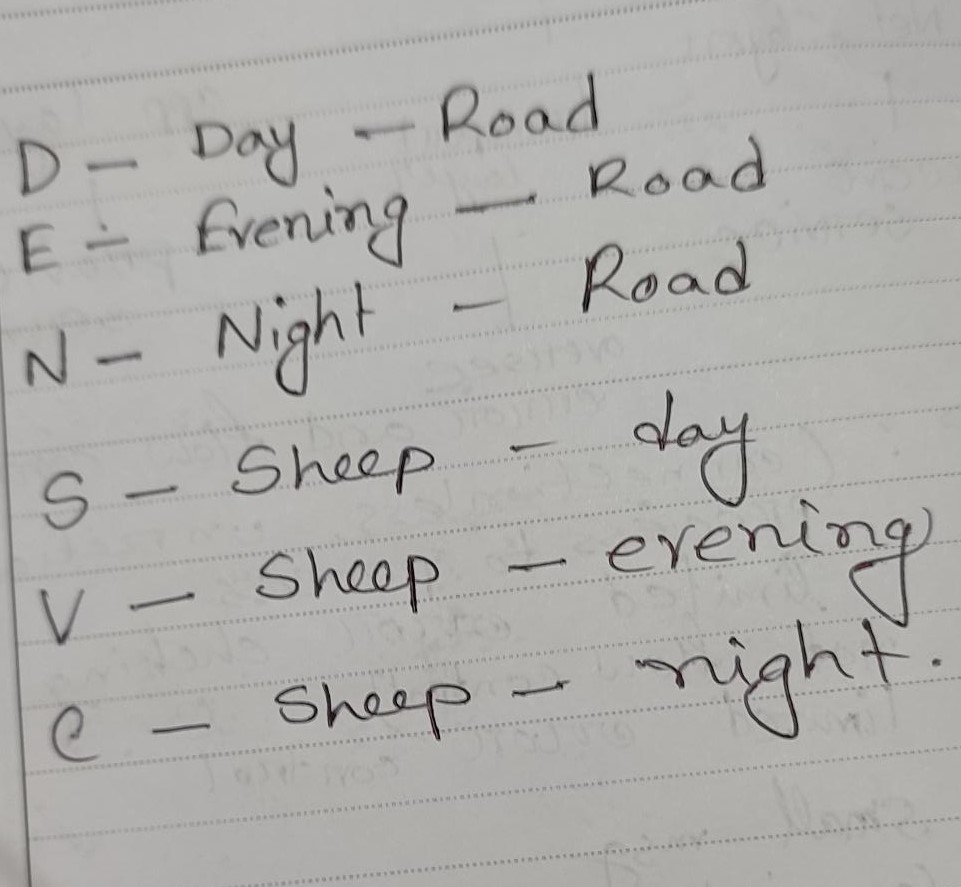 D - Day - Road
E - Evening - Road
N - Night - Road
S - Sheep - day
V - Sheep - evening
C - Sheep - night.